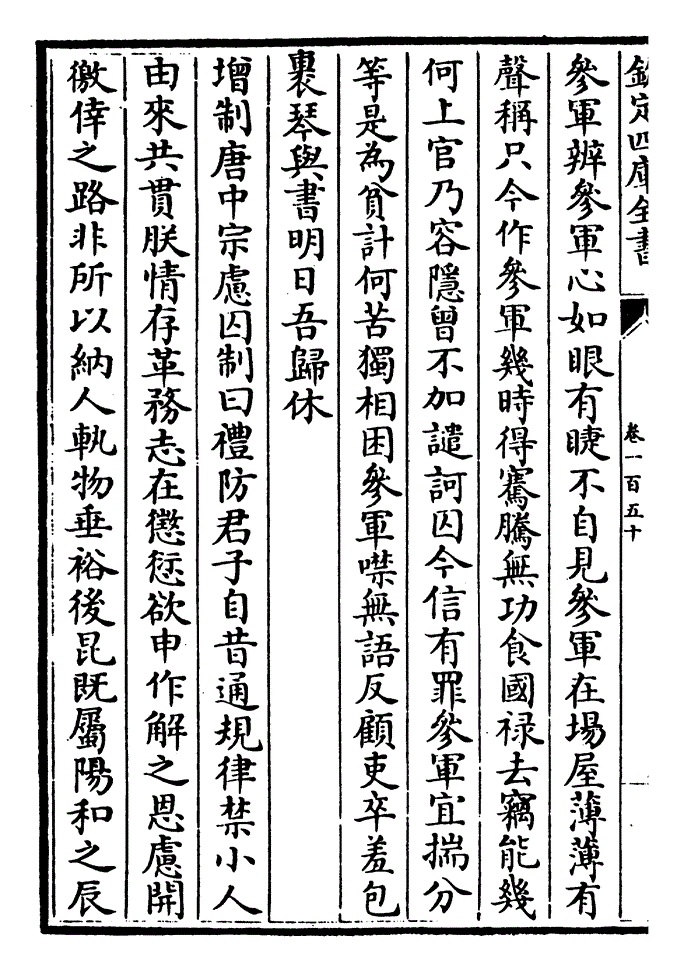 欽定四庫全書
卷一百五十
參軍辨參軍心如眼有睫不自見參軍在場屋薄薄有
聲稱只今作參軍幾時得騫騰無功食國禄去竊能幾
何上官乃容隱曾不加譴訶囚今信有罪參軍宜揣分
等是為貧計何苦獨相困參軍噤無語反顧吏卒羞包
裹琴與書明日吾歸休
增制唐中宗慮囚制曰禮防君子自昔通規律禁小人
由來共貫朕情存革務志在懲愆欲申作解之恩慮開
徼倖之路非所以納人軌物垂裕後昆既屬陽和之辰